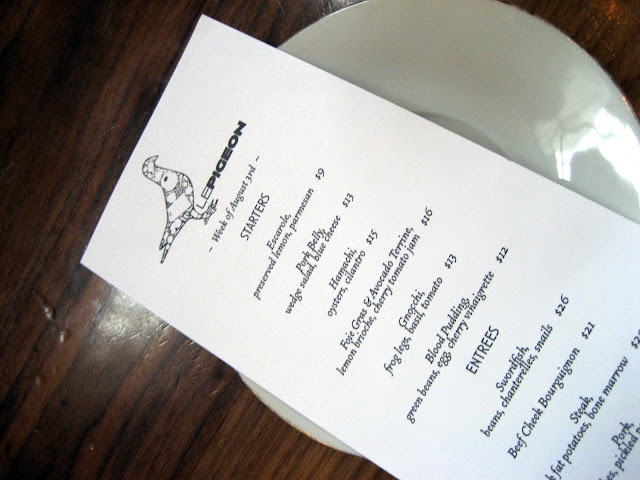 LEPIGEON
~ Week of August 3rd ~
STARTERS
Escarole,
preserved lemon, parmesan $9
Pork Belly,
wedge salad, blue cheese $13
Hamachi,
oysters, cilantro $15
Foie Gras & Avocado Terrine,
lemon brioche, cherry tomato jam $16
Gnocchi,
frog legs, basil, tomato $13
Blood Pudding,
green beans, egg, cherry vinaigrette $12
ENTREES
Swordfish,
beans, chantereilles, snails $26
Beef Cheek Bourguignon $21
Steak,
fat potatoes, bone marrow
Pork,
pickled